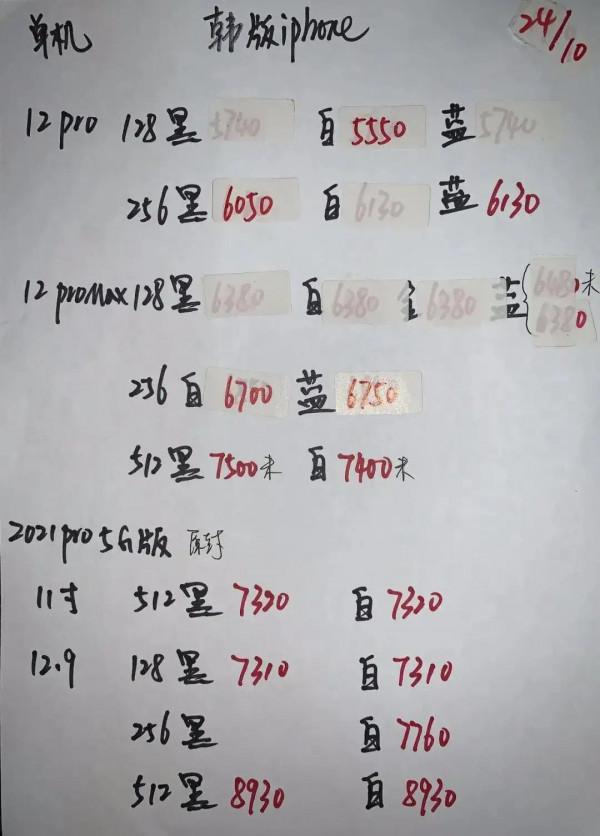 单机 韩版iphone 24/10
12pro 128黑 5740 白 5550 蓝 5740
256黑 6050 白 6130 蓝 6130
12proMax128黑 6380 白 6380 6380 蓝 6480未
6380
256白 6700 蓝 6750
512黑 7500未 白 7400未
2021pro5G版 原封
11寸 512黑 7320 白 7320
12.9 128黑 7310 白 7310
256黑 白 7760
512黑 8930 白 8930